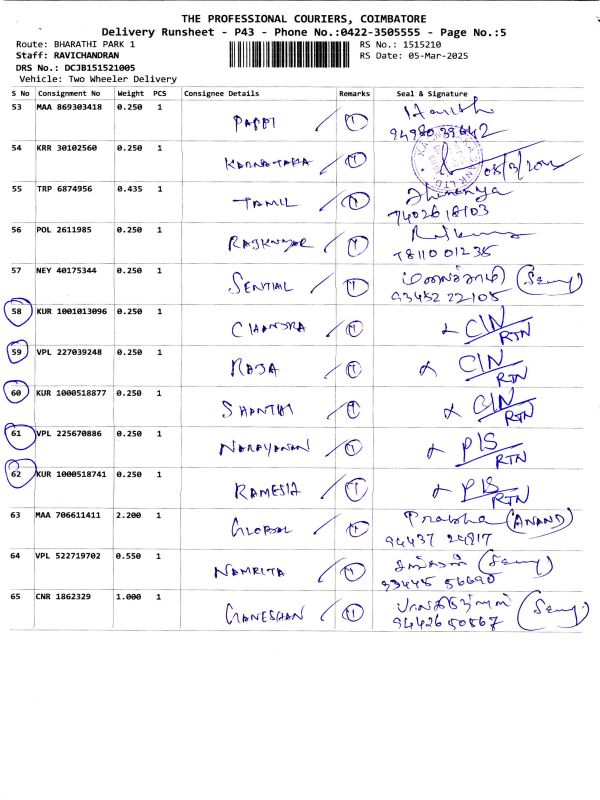 THE PROFESSIONAL COURIERS, COIMBATORE
Delivery Runsheet - P43 - Phone No.:0422-3505555 - Page No.:5
Route: BHARATHI PARK 1 RS No.: 1515210
Staff: RAVICHANDRAN RS Date: 05-Mar-2025
DRS No.: DCJB151521005
Vehicle: Two Wheeler Delivery
S No Consignment No Weight PCS Consignee Details Remarks Seal & Signature
53 MAA 869303418 0.250 1
PAPPI 1 Harish
54 KRR 30102560 0.250 1
KARNATAKA 1
55 TRP 6874956 0.435 1
TAMIL 1
7402618103
56 POL 2611985 0.250 1
RAJKUMAR 1 Rajkumar
7811001235
57 NEY 40175344 0.250 1
SENTHIL 1
93452 22105
58 KUR 1001013096 0.250 1
CHANDRA 1 CIN
RTN
59 VPL 227039248 0.250 1
RAJA 1 CIN
RTN
60 KUR 1000518877 0.250 1
SHANTHI 1 CIN
RTN
61 VPL 225670886 0.250 1
NARAYANAN 1 PIS
RTN
62 KUR 1000518741 0.250 1
RAMESH 1 PIS
RTN
63 MAA 706611411 2.200 1
GLOBAL 1 Prabha (ANAND)
64 VPL 522719702 0.550 1
NAMRITA 1
93445 56690
65 CNR 1862329 1.000 1
GANESHAN 1
94426 50567